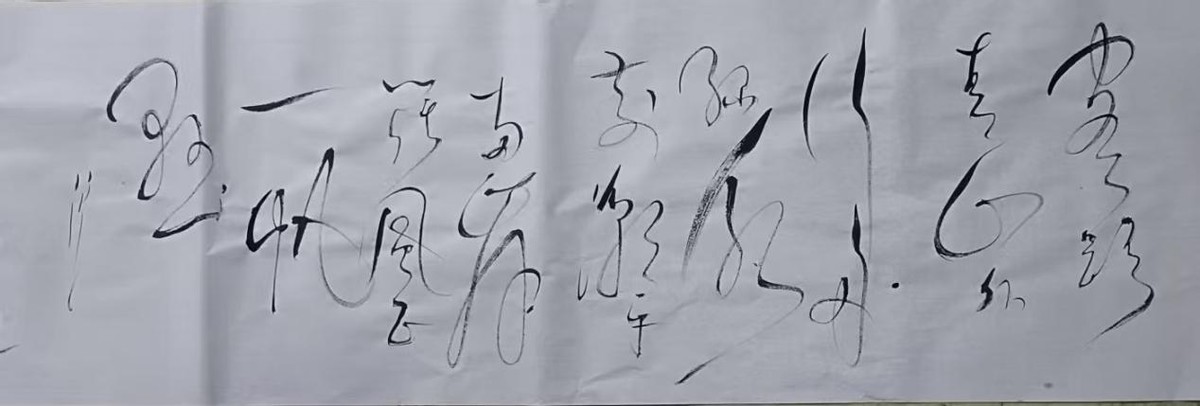 客路
青山外
行舟
绿水
前潮平
两岸
阔风正
一帆
悬